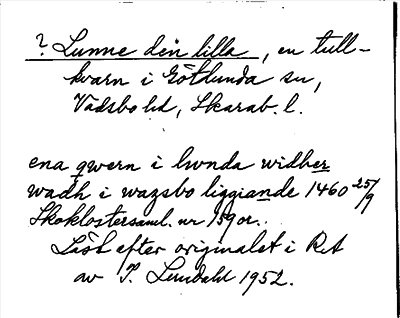 ? Lunne den lilla, en tull-
kvarn i Götlunda sn,
Vadsbo hd, Skarab. l.
ena qwern i lwnda widher
wadh i wazsbo liggiande 1460 25/9
Skoklostersaml. nr 159 or.
Läst efter originalet i RA
av I. Lundahl 1952.